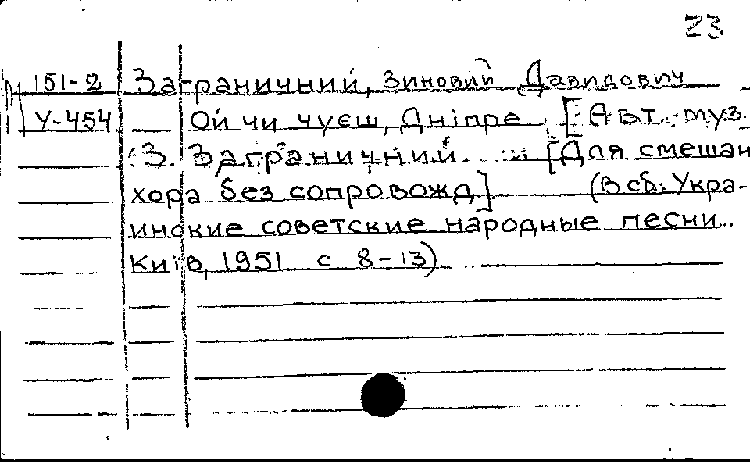 23
151-2 Заграничний, Зиновий Давидович
У-454 Ой чи чуєш, Дніпре. [Авт. муз.
З. Заграничний. [Для смешан
хора без сопровожд] (В сб.: Укра-
инские советские народные песни..
Київ, 1951 с 8-13)